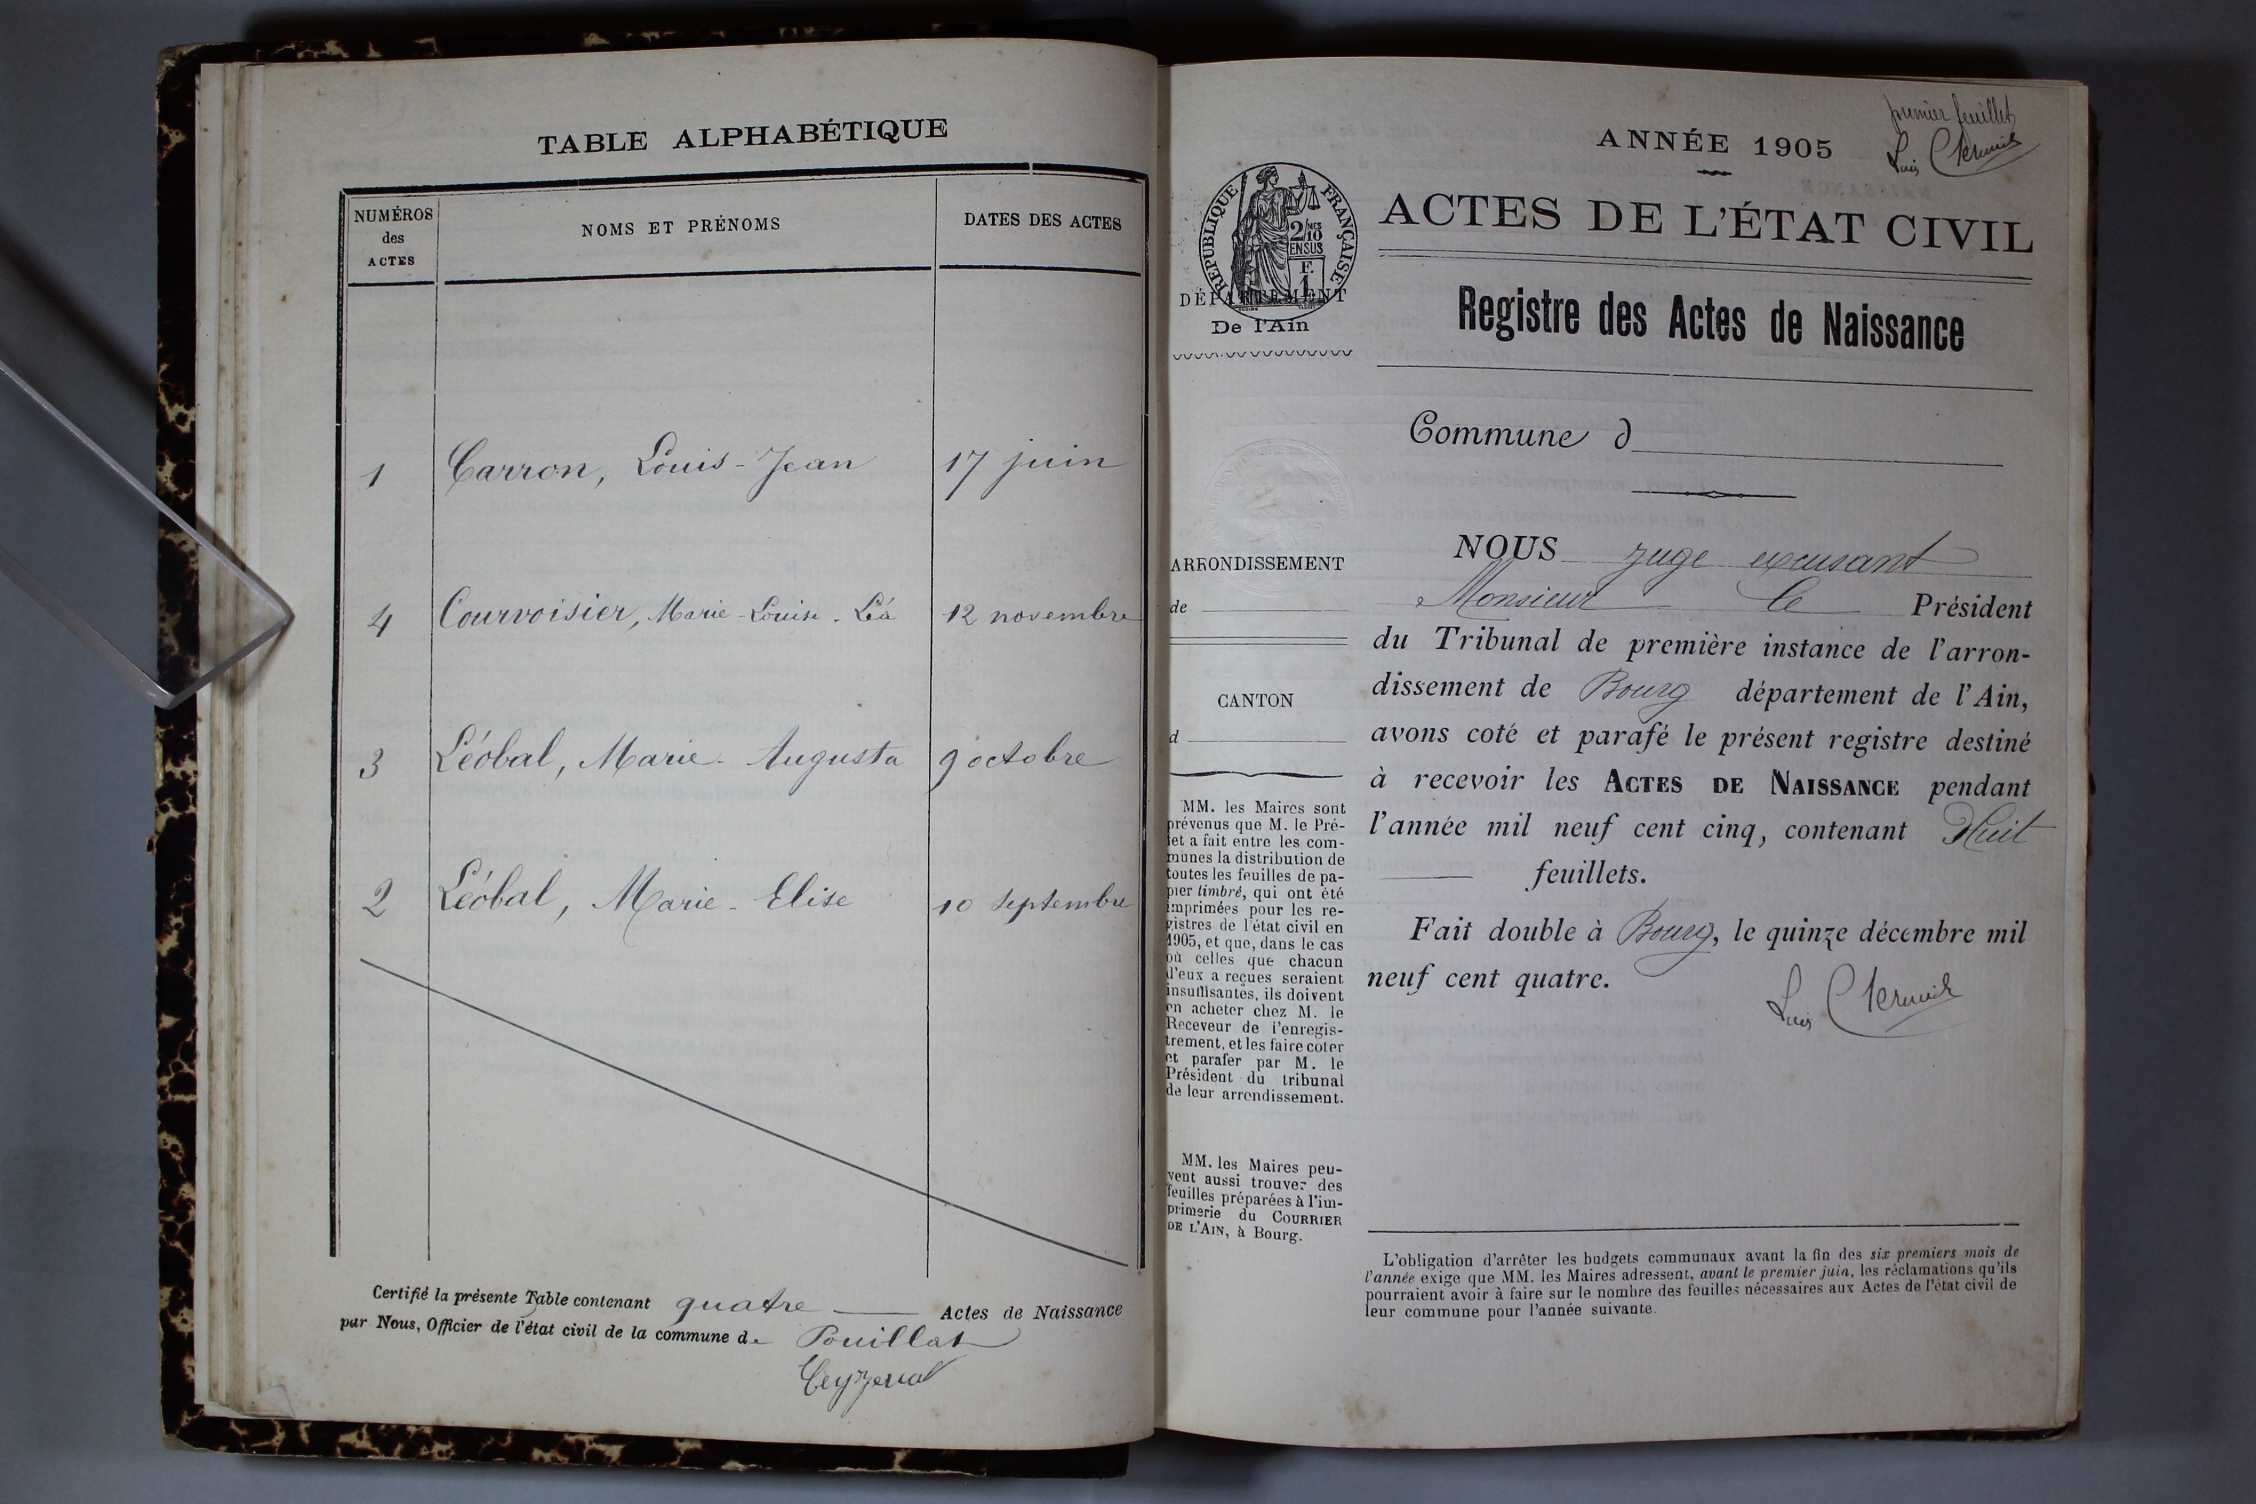 TABLE ALPHABÉTIQUE
NUMÉROS
des
ACTES
NOMS ET PRÉNOMS
DATES DES ACTES
1 Carron, Louis-Jean 17 juin
4 Courvoisier, Marie-Louise-Léa 12 novembre
3 Léobal, Marie-Augusta 9 octobre
2 Léobal, Marie-Elise 10 septembre
Certifié la présente Table contenant quatre Actes de Naissance
par Nous, Officier de l'état civil de la commune de Pouillat
premier feuillet
Louis
ANNÉE 1905
ACTES DE L'ÉTAT CIVIL
RÉPUBLIQUE FRANÇAISE
2/10MES
EN SUS
F.
1
DÉPARTEMENT
De l'Ain
Registre des Actes de Naissance
Commune d
ARRONDISSEMENT
de
CANTON
d
MM. les Maires sont
prévenus que M. le Pré-
fet a fait entre les com-
munes la distribution de
toutes les feuilles de pa-
pier timbré, qui ont été
imprimées pour les re-
gistres de l'état civil en
1905, et que, dans le cas
où celles que chacun
d'eux a reçues seraient
insuffisantes, ils doivent
en acheter chez M. le
Receveur de l'enregis-
trement, et les faire coter
et parafer par M. le
Président du tribunal
de leur arrondissement.
MM. les Maires peu-
vent aussi trouver des
feuilles préparées à l'im-
primerie du COURRIER
DE L'AIN, à Bourg.
NOUS juge excusant
Monsieur le Président
du Tribunal de première instance de l'arron-
dissement de Bourg département de l'Ain,
avons coté et parafé le présent registre destiné
à recevoir les ACTES DE NAISSANCE pendant
l'année mil neuf cent cinq, contenant Huit
feuillets.
Fait double à Bourg, le quinze décembre mil
neuf cent quatre.
Louis
L'obligation d'arrêter les budgets communaux avant la fin des six premiers mois de
l'année exige que MM. les Maires adressent, avant le premier juin, les réclamations qu'ils
pourraient avoir à faire sur le nombre des feuilles nécessaires aux Actes de l'état civil de
leur commune pour l'année suivante.